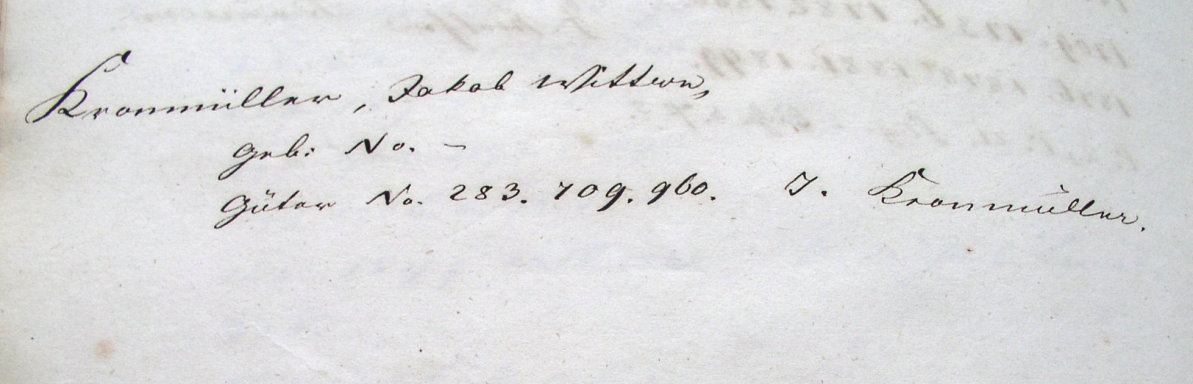 Kronmüller, Jakob Wittwe,
Geb: No. –
Güter No. 283. 709. 960. J. Kronmüller.